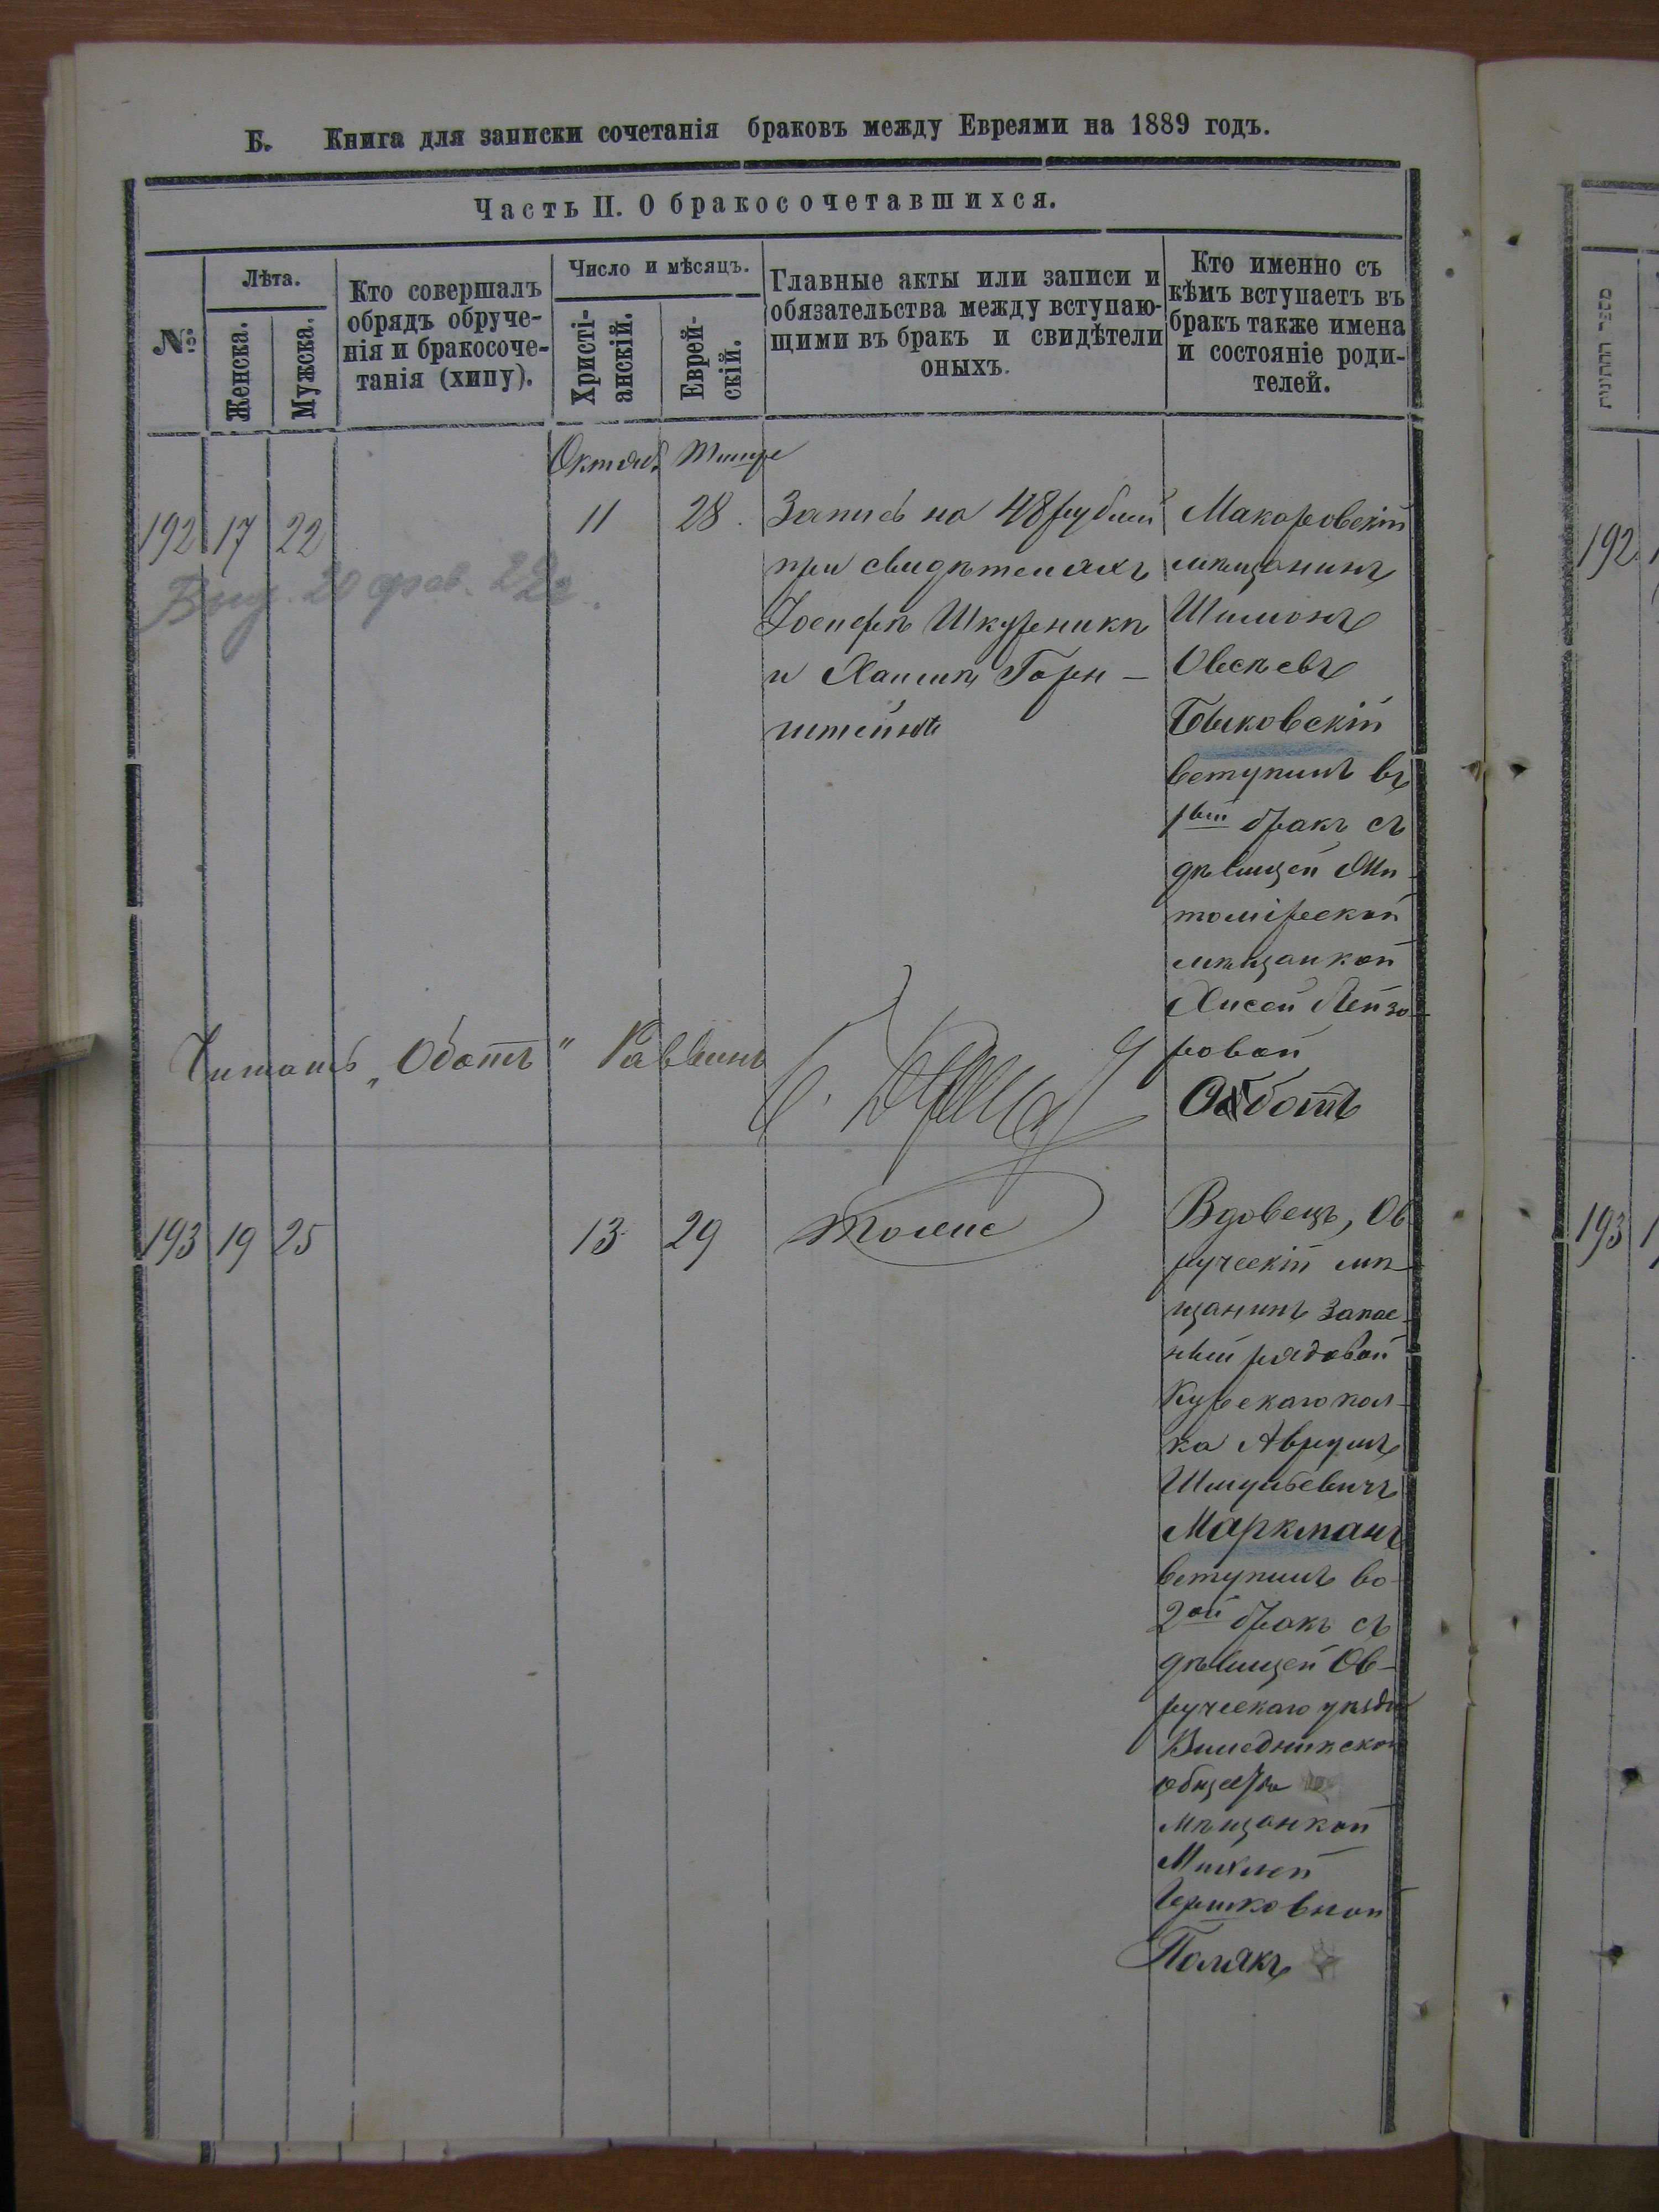 Б. Книга для записки сочетанія браковъ между Евреями на 1889 годъ.
Часть II. О бракосочетавшихся.
№
Лѣта.
Женска.
Мужска.
Кто совершалъ
обрядъ обруче-
нія и бракосоче-
танія (хипу).
Число и мѣсяцъ.
Христі-
анскій.
Еврей-
скій.
Главные акты или записи и
обязательства между вступаю-
щими въ бракъ и свидѣтели
оныхъ.
Кто именно съ
кѣмъ вступаетъ въ
бракъ также имена
и состояніе роди-
телей.
Октяб. Тишре
192 17 22 11 28.
Запись на 48 рублей
при свидѣтеляхъ
Іосифѣ Шкурникѣ
и Хаимѣ Горн-
штейнѣ
Макаровскій
мѣщанинъ
Шимонъ
Овсѣевъ
Быковскій
вступилъ въ
1вый бракъ съ
дѣвицей Жи-
томірской
мѣщанкой
Хисей Лейзо-
ровой
Оботъ
Выд. 20 фев. 22г.
Читать „Оботъ“ Раввинъ
193 19 25 13 29 тоже
Вдовецъ, Ов
ручскій мѣ-
щанинъ запас-
ный рядовой
Курскаго пол-
ка Аврумъ
Шмулевичъ
Маркманъ
вступилъ во
2ой бракъ съ
дѣвицей Ов-
ручскаго уѣзда
общества
мѣщанкой
Михлей
Гершковной
Полякъ
מספר החתונות
192
193